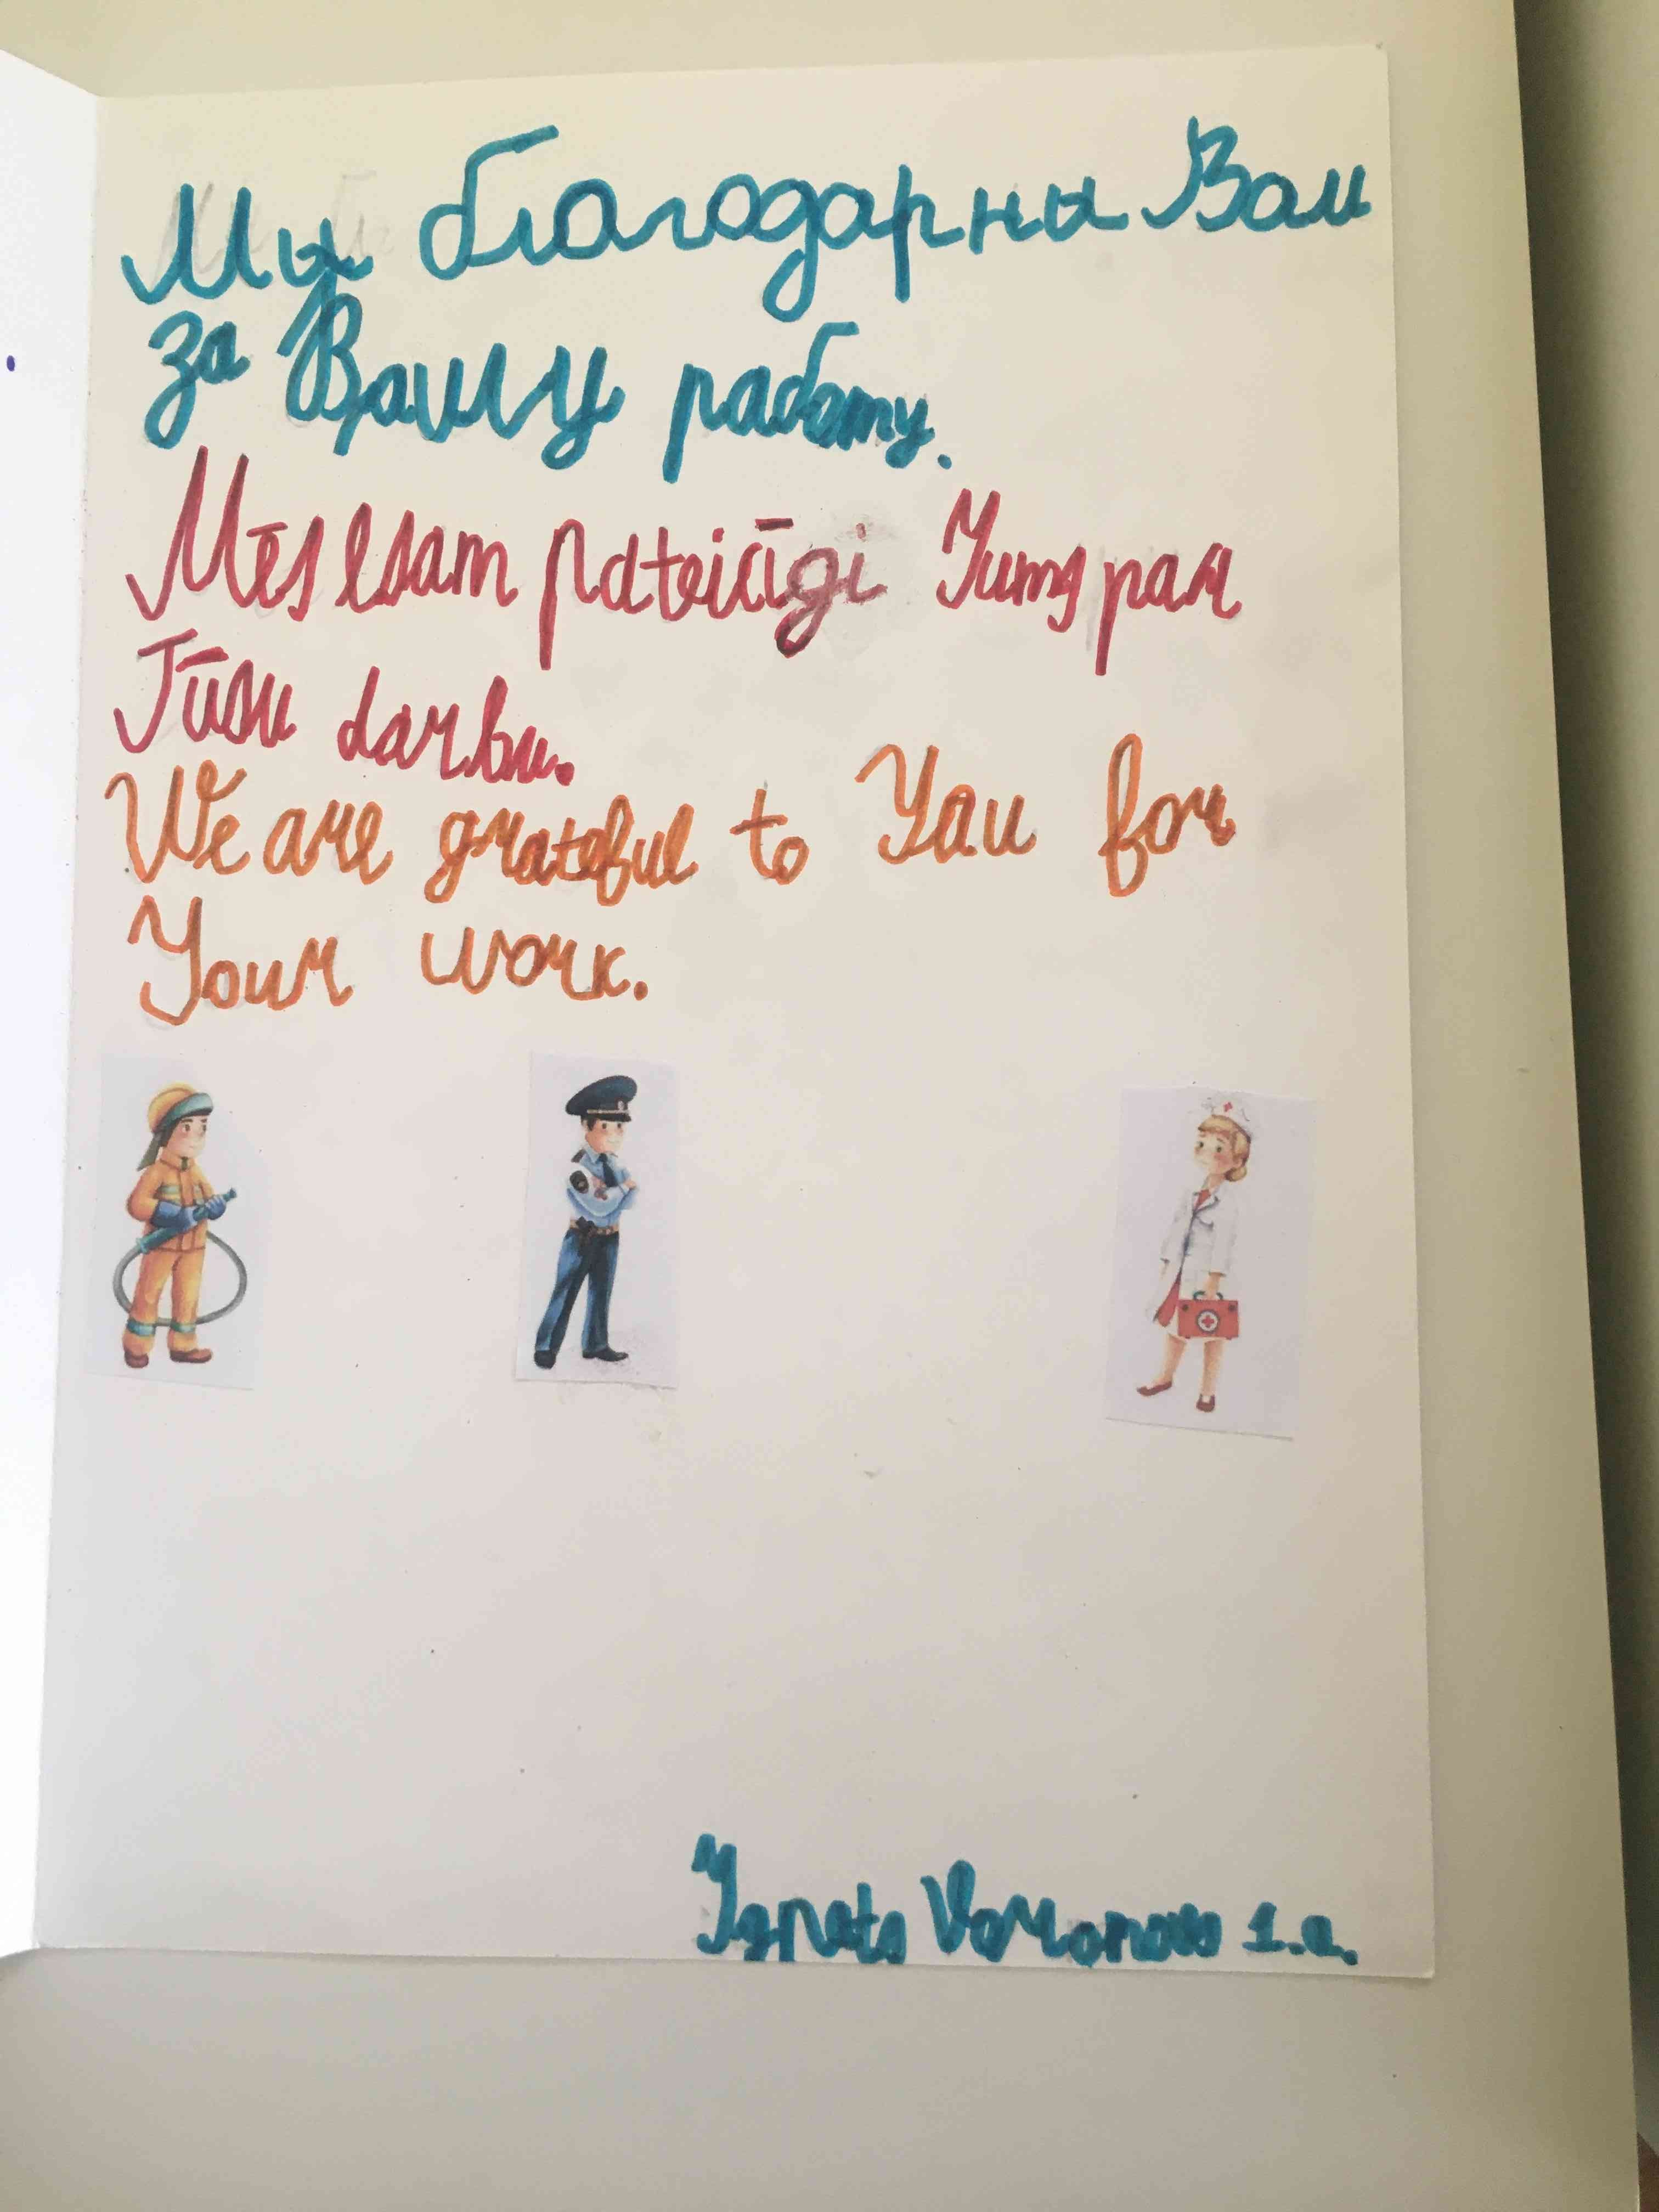 Мы благодарны Вам
за Вашу работу.
Mēs esam pateicīgi Jums par
Jūsu darbu.
We are grateful to You for
Your work.
Ignats Voronovs 1.a.